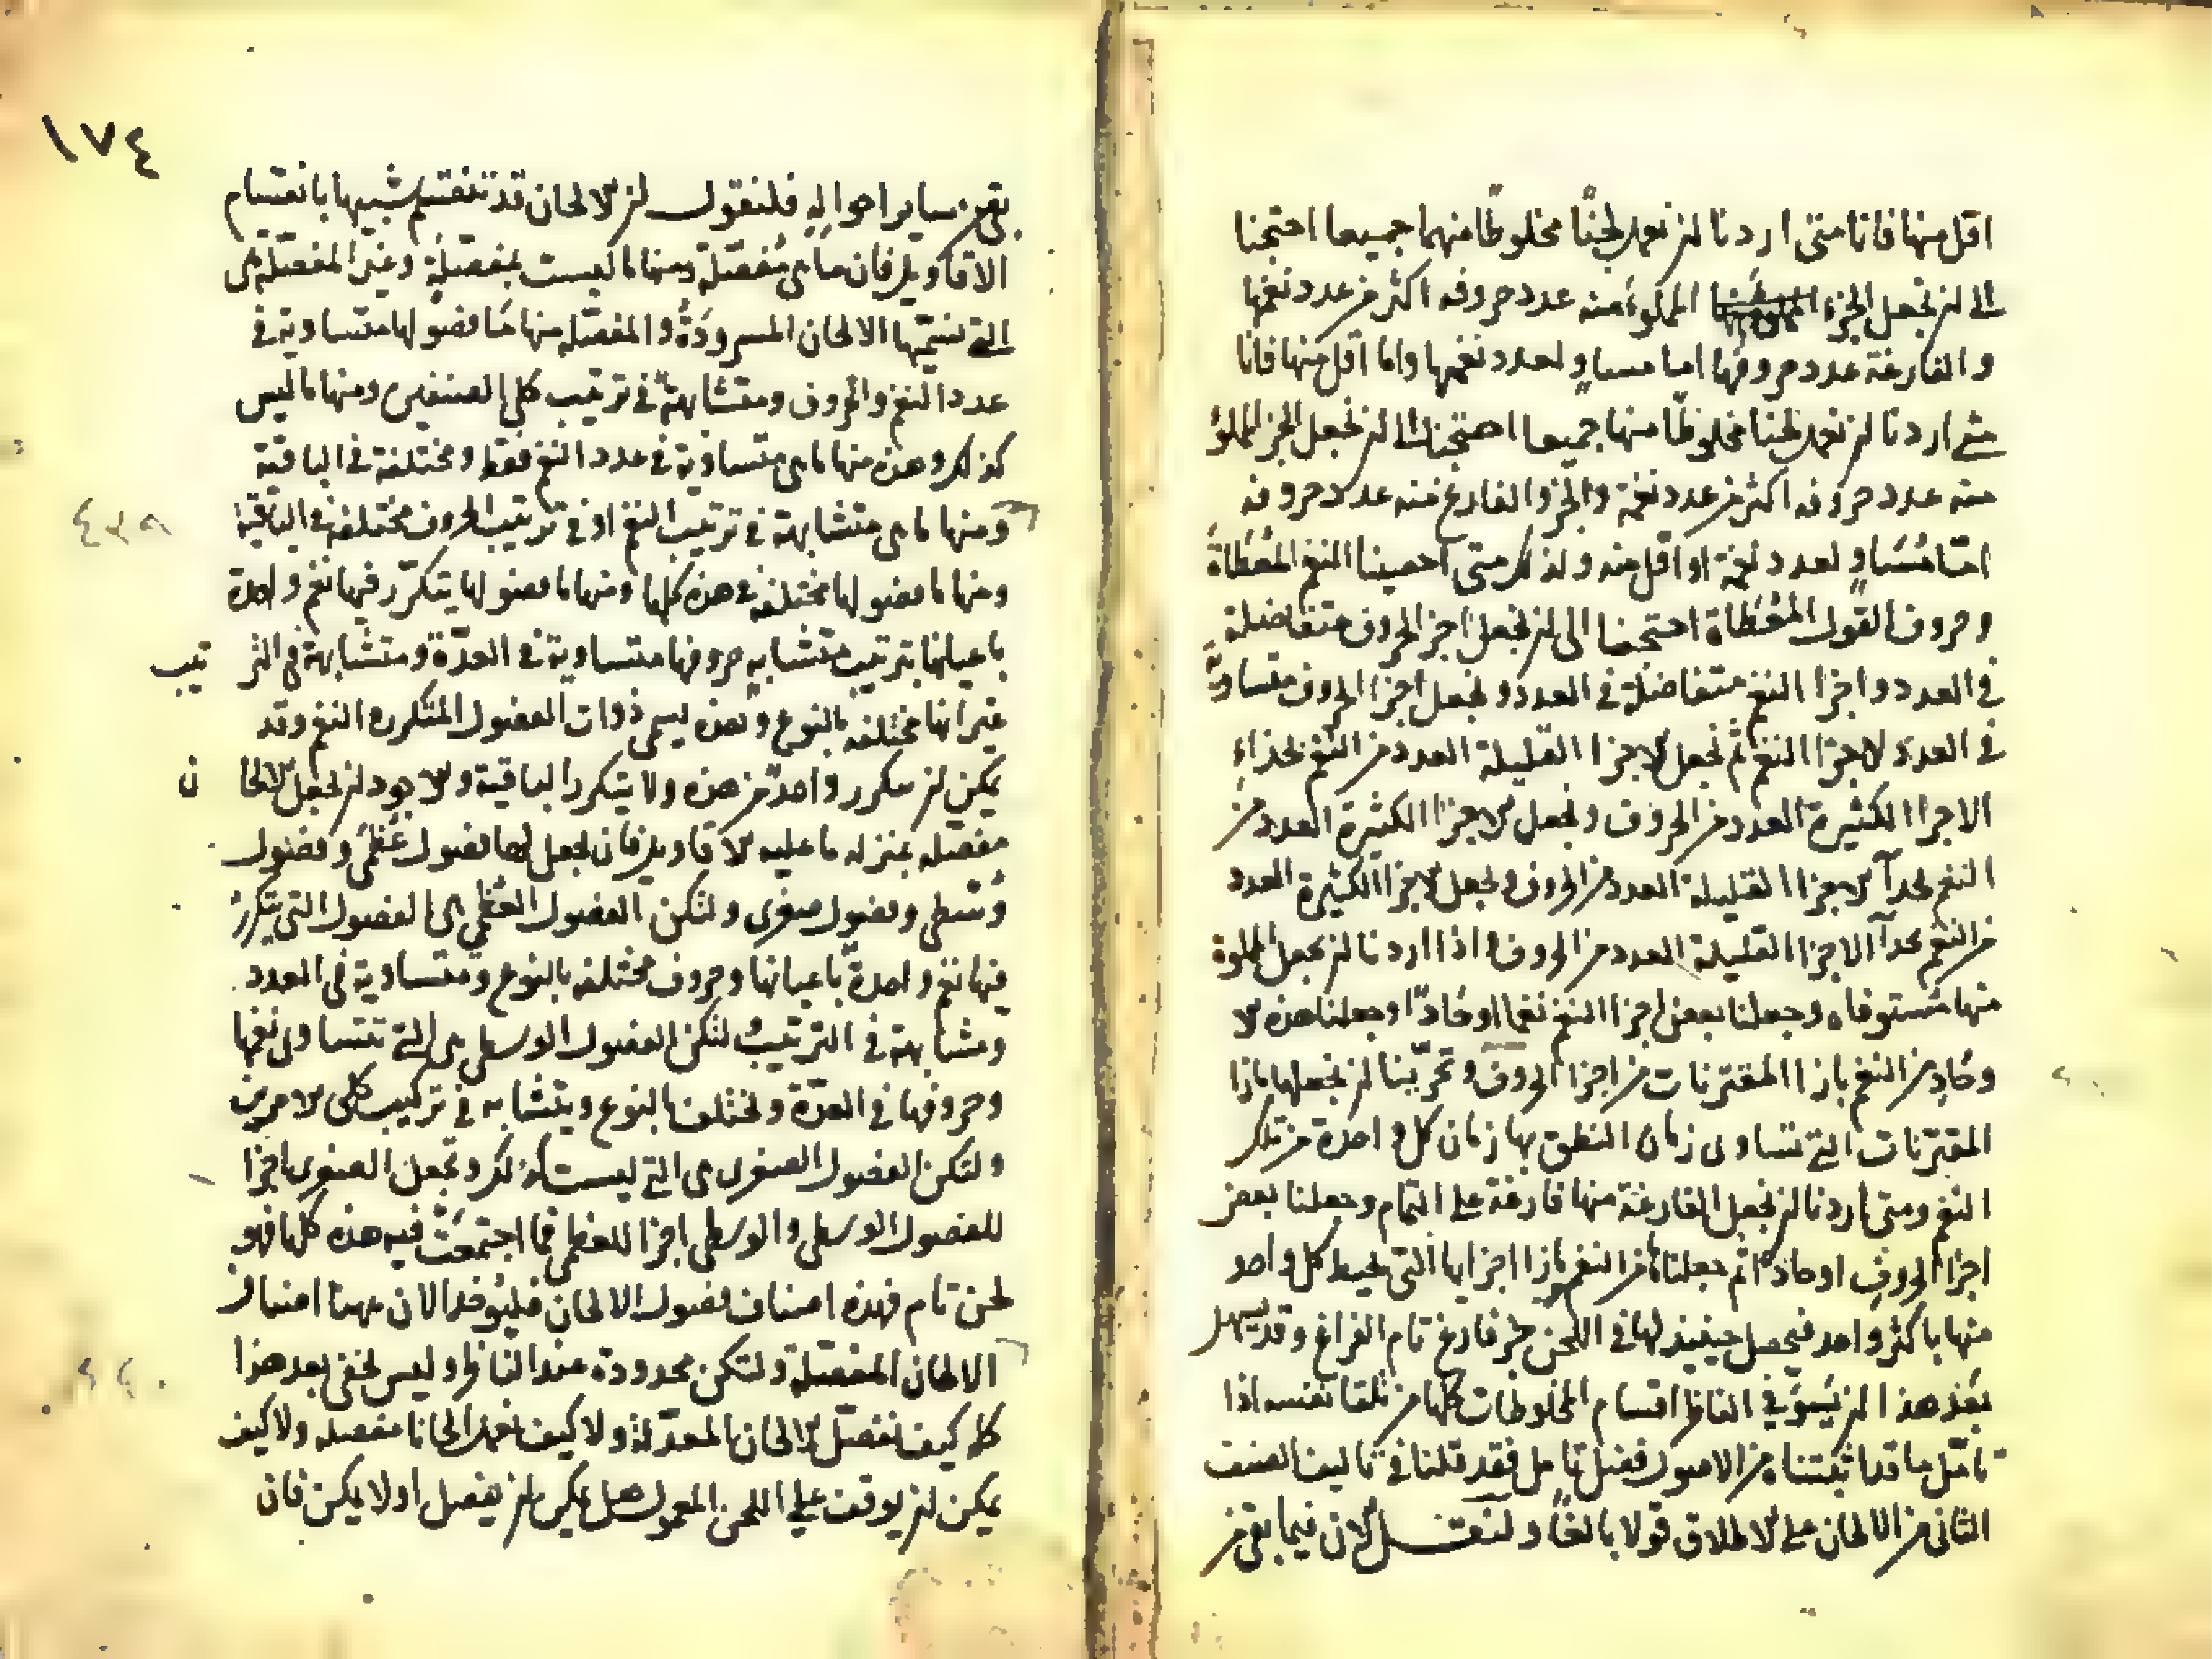 اقل منها فانا متى اردنا ان نعمل لحنًا مخلوطًا منهما جميعا احتجنا
الى ان نجعل الجزء المملوء منه عدد حروفه اكثر من عدد نغمها
والفارغة عدد حروفها اما مساوٍ لعدد نغمها واما اقل منها فانا
متى اردنا ان نعمل لحنا مخلوطًا منها جميعا احتجنا الى ان نجعل الجز المملؤ
منه عدد حروفه اكثر من عدد نغمه والجز والفارغ منه عدد حروفه
امّا مُسَاوٍ لعدد نغمه او اقل منه ولذلك متى احصينا النغم المعُطَاة
وحروف القول المُعْطَاة احتجنا الى ان نجعل اجزا الحروف متفاضلة
في العدد واجزا النغم متفاضلة في العدد ونجعل اجزا الحروف متساويّة
في العدد لاجزا النغم ثم نجعل الاجزا القليلة العدد من النغم بحذاءِ
الاجزا الكثيرة العدد من الحروف ونجعل الاجزا الكثيرة العدد من
النغم بحدآ الاجزا القليلة العدد من الحروف ونجعل الاجزا الكثيرة العدد
من النغم بحدآ الاجزا القليلة العدد من الحروف واذا اردنا ان نجعل المملوة
منها مستوفاه وجعلنا بعض اجزا النغم نغما اوحَادًا وجعلنا هذه الا
وحَادِ من النغم بازا المقترنات من اجزا الحروف وتحرّينا ان نجعلها بازا
المقترنات التي تتساوى زمان النطق بها زمان كل واحدة من تلك
النغم ومتى اردنا ان نجعل الفارغة منها فارغة على التمام وجعلنا بعض
اجزا الحروف اوحادًا ثم جعلناها من النغم بازا اجزايها التي يحيط كل واحد
منها باكثر من واحد فيحصل حينيذ لها في اللحن جز فارغ تام الفراغ وقد يسهل
بعْد هذا ان يَسْتوْفي الناظر اقسام المخلوطات كلها من تلقا نفسه اذا
تامّل ما قد اثبتناه من الاصول فضل تامل فقد قلنا في تاليف الصنف
الثاني من الالحان على الاطلاق قولا بالغًا ولنقــل الان فيما بقى من
١٧٤
بقى من ساير احواله فلنقول ان الالحان قد تنقسم شبيها بانقسام
الاقاويل فان منها ما هى مُفصّلة ومنها ما ليست بمفصّلة وغير المفصّله هى
التي نسمّيها الالحان المسرودَةُ والمفصّله منها مَا فصولها متساوية في
عدد النغم والحروف ومتشابهة في ترتيب كلى الصنفين ومنها ما ليس
كذلك وهذه منها ما هى متساوية في عدد النغم فقط ومختلفة في الباقية
٤٣٩
ومنها ما هى متشابهة في ترتيب النغم او في ترتيب الحروف مختلفة في الباقية
ومنها ما فصولها مختلفة في هذه كلها ومنها ما فصولها يتكرّر فيها نغم واحدة
باعيانها بترتيب متشابه حروفها متساوية في العدّة ومتشابهة في الترتيب
غير انها مختلفة بالنوع وهذه يسمى ذوات الفصول المتكرره النغم وقد
يمكن ان يتكرر واحدة من هذه ولا يتكرر الباقية والاجود ان نجعل الالحان
مفصّله بمنزله ما عليه الاقاويل فان نجعل لها فصول عُظْمَى وفصول
وُسْطى وفصول صغرى ولتكن الفصول العُظْمى هى الفصول التي يتكرّرُ
فيها نغم واحدة باعيانها وحروف مختلفه بالنوع ومتساوية في العدد
ومتشابهة في الترتيب ولتكن الفصول الوسطى هى التي تتساوى نغمها
وحروفها في العدّة وتختلف بالنوع ويتشابه في تركيب كلى الامرين
ولتكن الفصول الصغرى هى التي ليست كذلك ونجعل الصغرى اجزا
للفصول الوسطى والوسطى اجزا للعظمى فما اجتمعَتْ فيه هذه كلها فهو
لحن تام فهذه اصناف فصول الالحان فليُوخذ الان ههنا اصناف
٤٤٠
الالحان المفصّلة ولتكن محدودة عند الناظر وليس يخفى بعد هذا
كله كيف نفصّل الالحان المعدّلة ولا كيف نعمل الحانا مفصله ولا كيف
يمكن ان يوقف على اللحن المعمول هل يمكن ان يفصل او لا يمكن فان